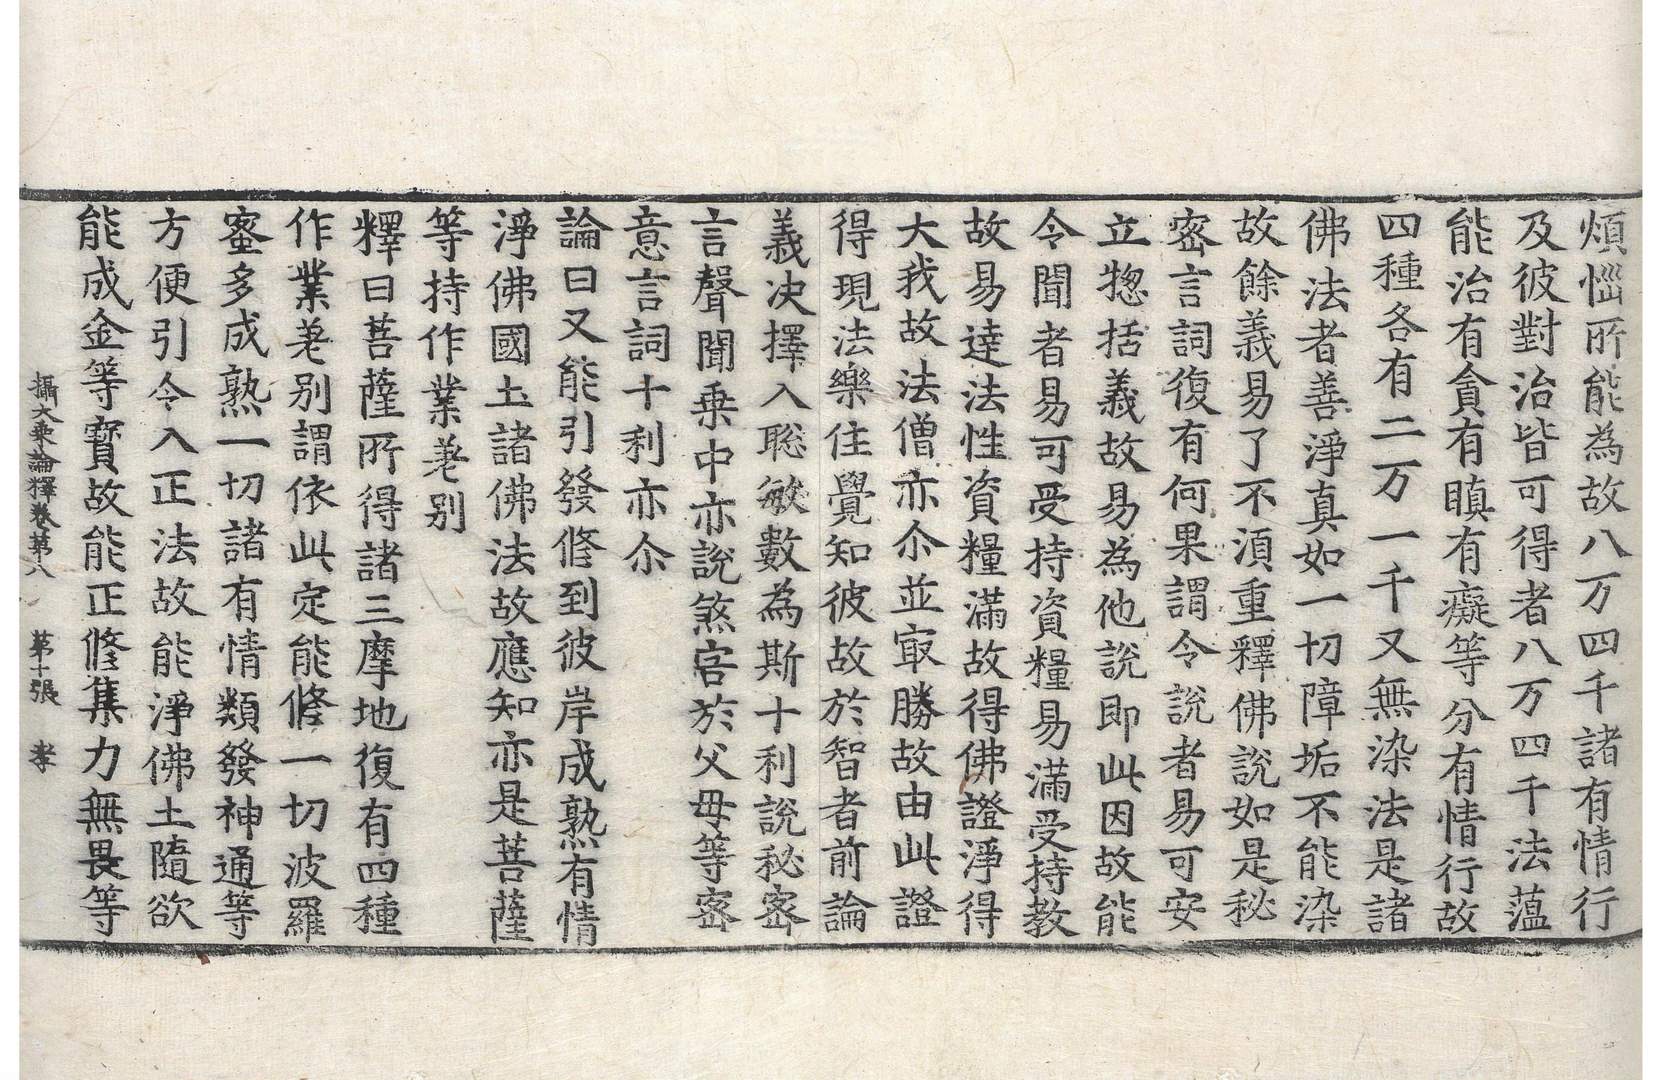 煩惱所能為故八万四千諸有情行
及彼對治皆可得者八万四千法蘊
能治有貪有瞋有癡等分有情行故
四種各有二万一千又無染法是諸
佛法者善淨真如一切障垢不能染
故餘義易了不須重釋佛說如是秘
密言詞復有何果謂令說者易可安
立揔括義故易為他說即此因故能
令聞者易可受持資糧易滿受持教
故易達法性資糧滿故得佛證淨得
大我故法僧亦尒並冣勝故由此證
得現法樂住覺知彼故於智者前論
義決擇入聡敏數為斯十利說秘密
言聲聞乘中亦說煞害於父母等密
意言詞十利亦尒
論曰又能引發修到彼岸成熟有情
淨佛國土諸佛法故應知亦是菩薩
等持作業差別
釋曰菩薩所得諸三摩地復有四種
作業差別謂依此定能修一切波羅
蜜多成熟一切諸有情類發神通等
方便引令入正法故能淨佛土隨欲
能成金等寶故能正修集力無畏等
攝大乘論釋卷第八 第十張 孝